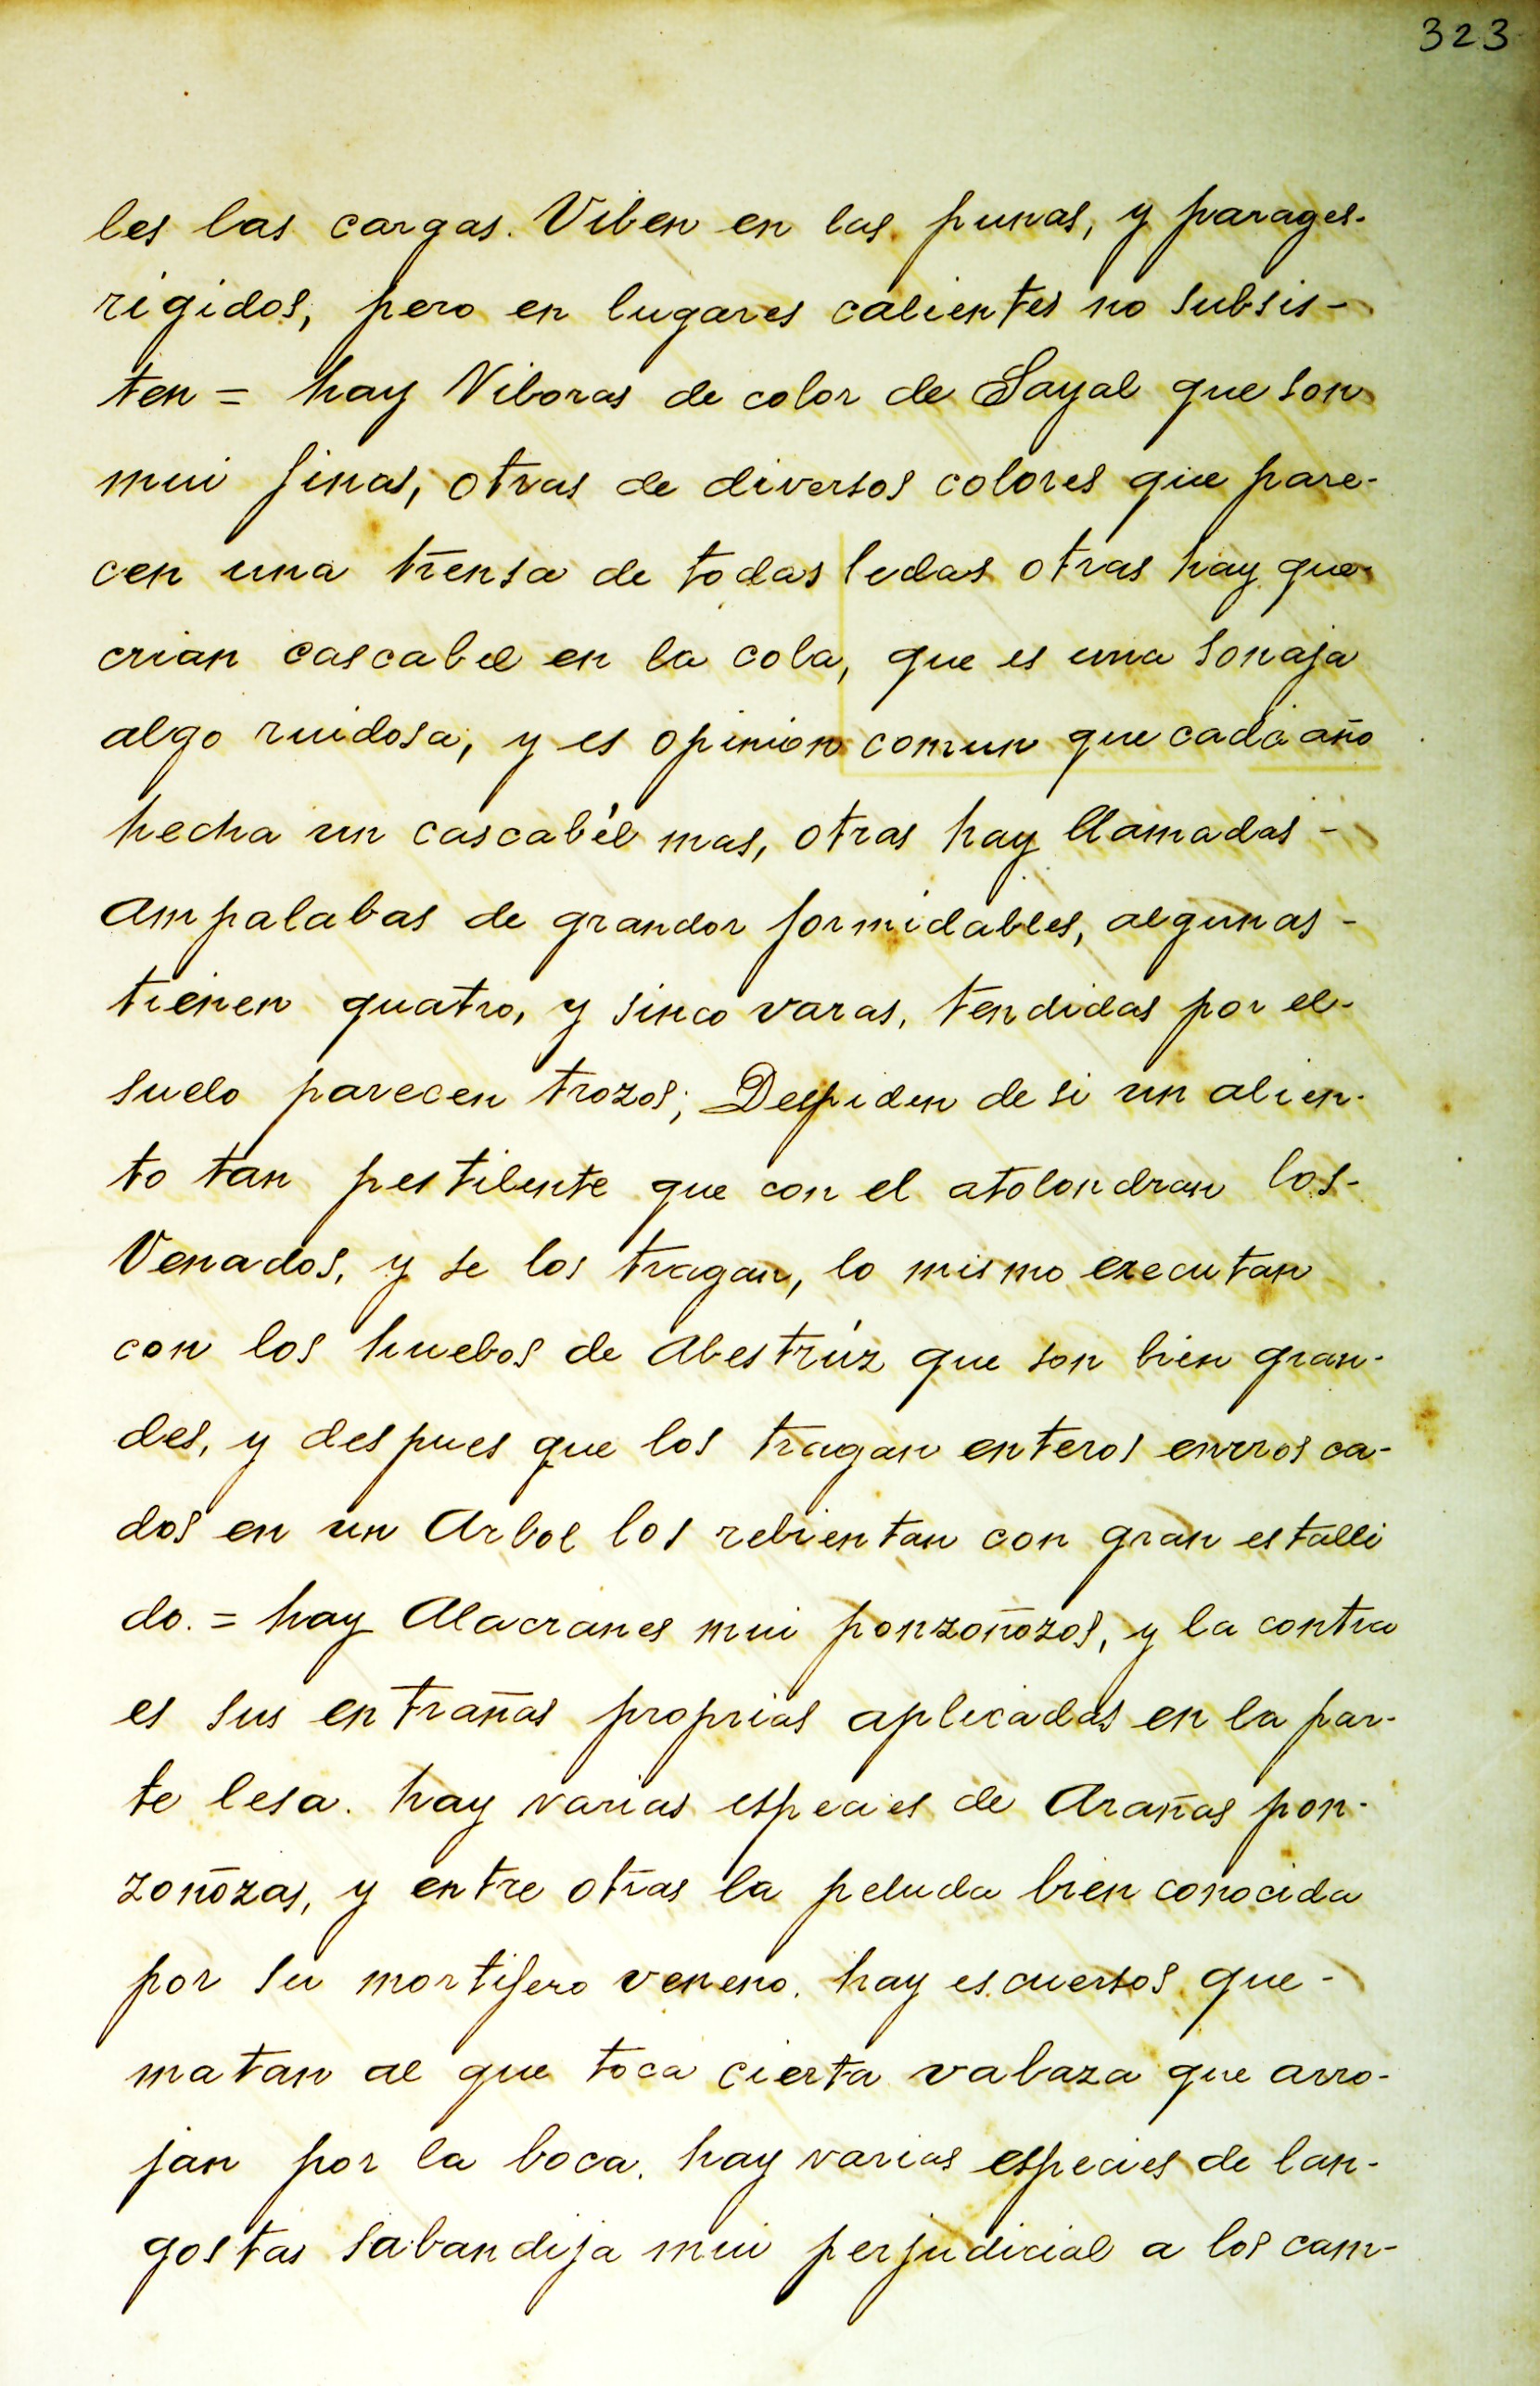 323
les las cargas. Viben en las punas, y parages-
rigidos, pero en lugares calientes no subsis-
ten = hay Viboras de color de Sayal que son
mui finas, otras de diversos colores que pare-
cen una trensa de todas sedas otras hay que
crian cascabel en la cola, que es una sonaja
algo ruidosa, y es opinion comun que cada año
hecha un cascabél mas, otras hay llamadas -
Ampalabas de grandor formidables, algunas -
tienen quatro, y sinco varas, tendidas por el-
suelo parecen trozos; Despiden de si un alien-
to tan pestilente que con el atolondran los-
Venados, y se los tragan, lo mismo executan
con los huebos de Abestrúz que son bien gran-
des, y despues que los tragan enteros enrrosca-
dos en un Arbol los rebientan con gran estalli
do. = hay Alacranes mui ponzoñozos, y la contra
es sus entrañas proprias aplicadas en la par-
te lesa. hay varias especies de Arañas pon-
zoñozas, y entre otras la peluda bien conocida
por su mortifero veneno. hay escuersos que -
matan al que toca cierta vabaza que arro-
jan por la boca. hay varias especies de lan-
gostas sabandija mui perjudicial a los cam-